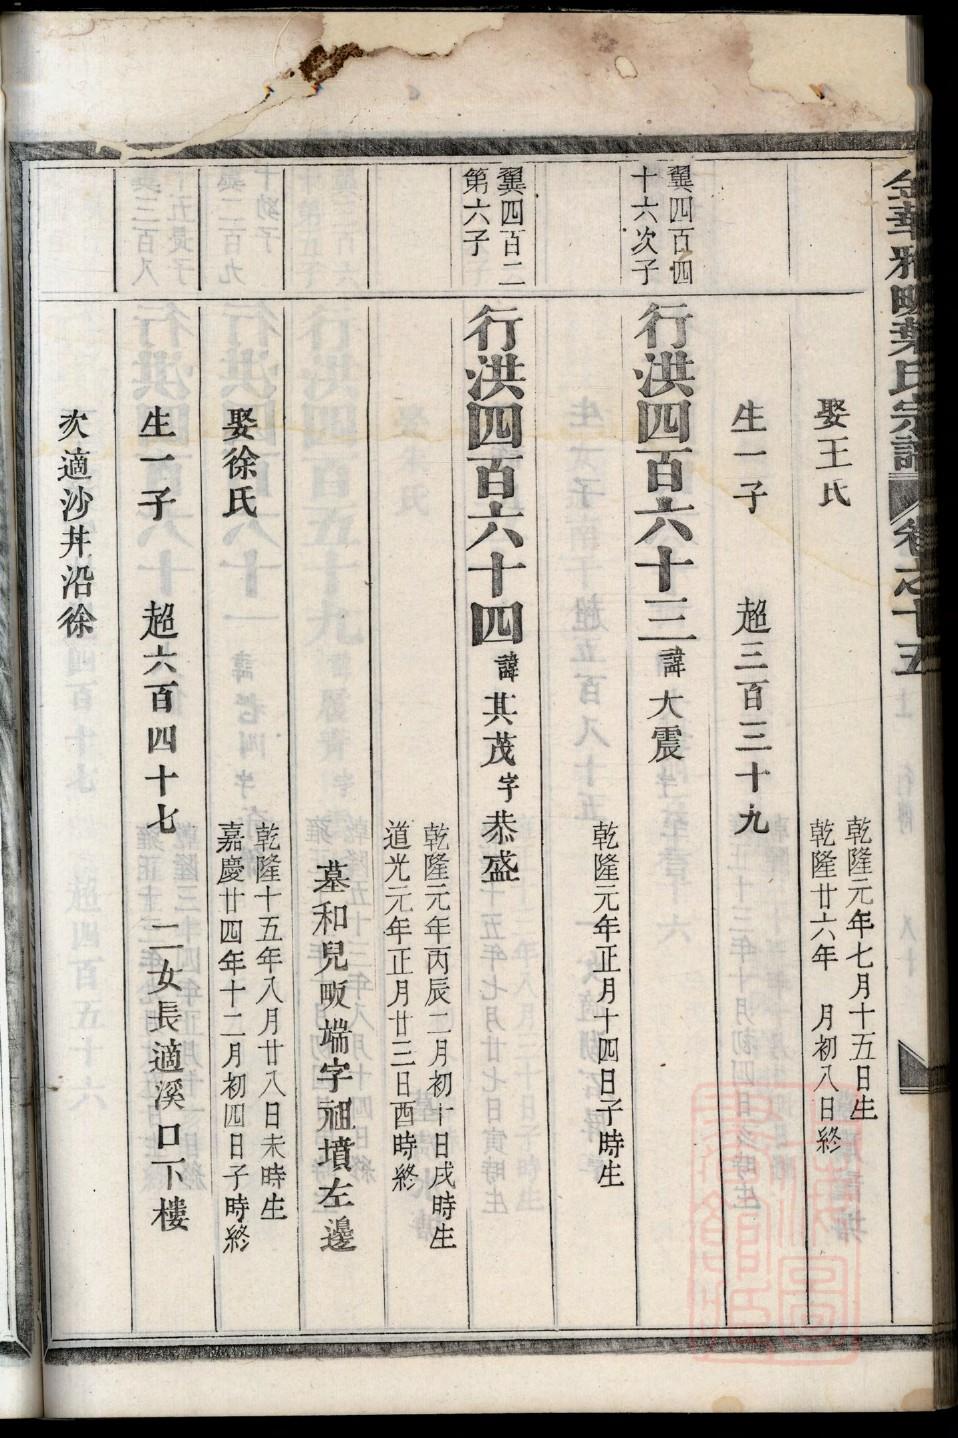 金華雅畈葉氏宗譜 卷之十五
娶王氏 乾隆元年七月十五日生
乾隆廿六年 月初八日終
生一子 超三百三十九
翼四百四
十六次子
行洪四百六十三 諱大震 乾隆元年正月十四日子時生
翼四百二
第六子
行洪四百六十四 諱其茂字恭盛
乾隆元年丙辰二月初十日戌時生
道光元年正月廿三日酉時終
墓和兒畈端字祖墳左邊
娶徐氏 乾隆十五年八月廿八日未時生
嘉慶廿四年十二月初四日子時終
生一子 超六百四十七 二女長適溪口下樓
次適沙井沿徐